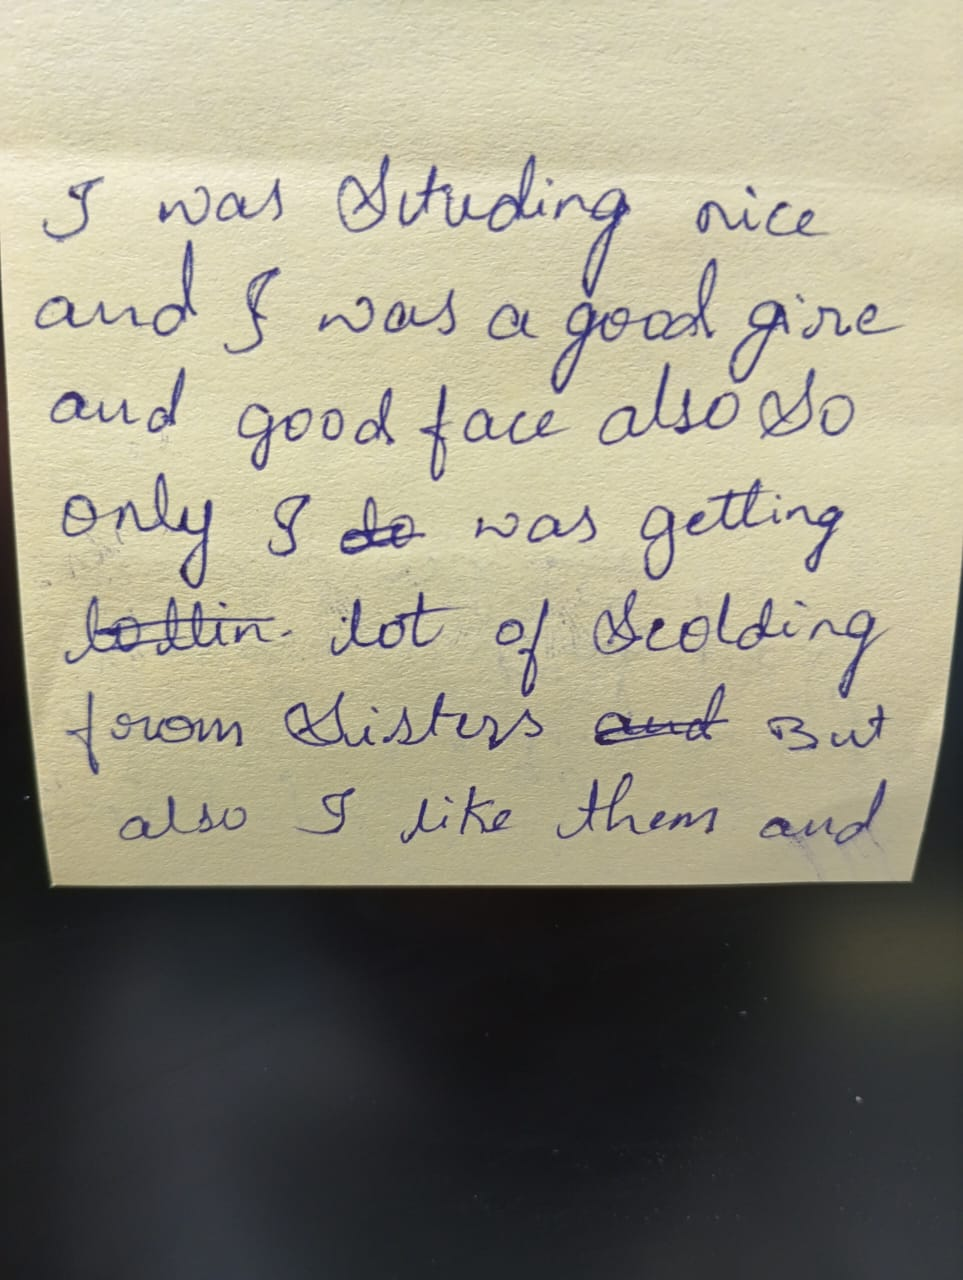 I was Studing nice
and I was a good gire
and good face also So
only I do was getting
lot of Scolding
from Sisters and But
also I like them and